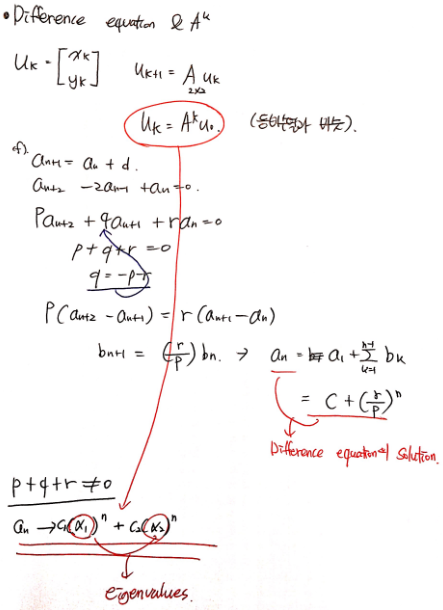 • Difference equation & A^k
u_k = [x_k y_k] u_{k+1} = A u_k
2x2
u_k = A^k u_0. (등비수열과 비슷).
cf)
a_{n+1} = a_n + d.
a_{n+2} - 2a_{n+1} + a_n = 0.
Pa_{n+2} + qa_{n+1} + ra_n = 0
p + q + r = 0
q = -p-r
P(a_{n+2} - a_{n+1}) = r(a_{n+1} - a_n)
b_{n+1} = (r/p) b_n. → a_n = a_1 + Σ_{k=1}^{n-1} b_k
= C + (r/p)^n
Difference equation의 solution.
p + q + r ≠ 0
a_n → c_1(α_1)^n + c_2(α_2)^n
eigenvalues.